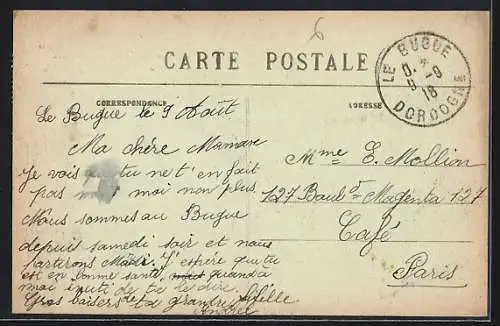 6
CARTE POSTALE
LE BUGUE
5 -9
18
DORDOGNE
CORRESPONDANCE
ADRESSE
Le Bugue le 9 Août
Ma chère Maman
Je vois que tu ne t'en fait
pas moi non plus.
Nous sommes au Bugue
depuis samedi soir et nous
partirons J'espère que tu
est en bonne santé, quand a
moi inuti de te le dire.
Gros baisers de ta grande fifille
Mme E. Mollion
127 Boul. Magenta 127
Café
Paris